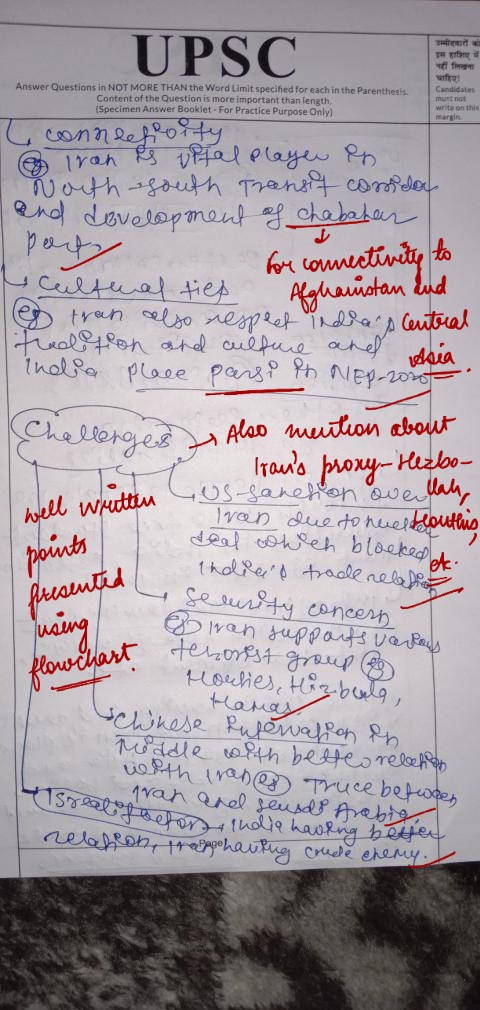 UPSC
Answer Questions in NOT MORE THAN the Word Limit specified for each in the Parenthesis.
Content of the Question is more important than length.
(Specimen Answer Booklet - For Practice Purpose Only)
उम्मीदवारों को
इस हाशिए में
नहीं लिखना
चाहिए!
Candidates
must not
write on this
margin.
connectivity
eg Iran is vital player in
North-South Transit corridor
and development of chabahar
port.
For connectivity to
Afghanistan and
Central
Asia.
Cultural ties
eg Iran also respect India's
tradition and culture and
India place parsi in NEP-2020
Challenges
→ Also mention about
Iran's proxy - Hezbo-
llah,
Houthis,
etc.
US-sanction over
Iran due to nuclear
deal which blocked
India's trade relation
well written
points
presented
using
flowchart.
Security concern
eg Iran supports various
terrorist group eg
Houties, Hizbula,
Hamas.
Chinese in
Middle with better relation
with Iran eg Truce between
Iran and Saudi Arabia.
factor → India having better
relation, Iran having crude enemy.
Page